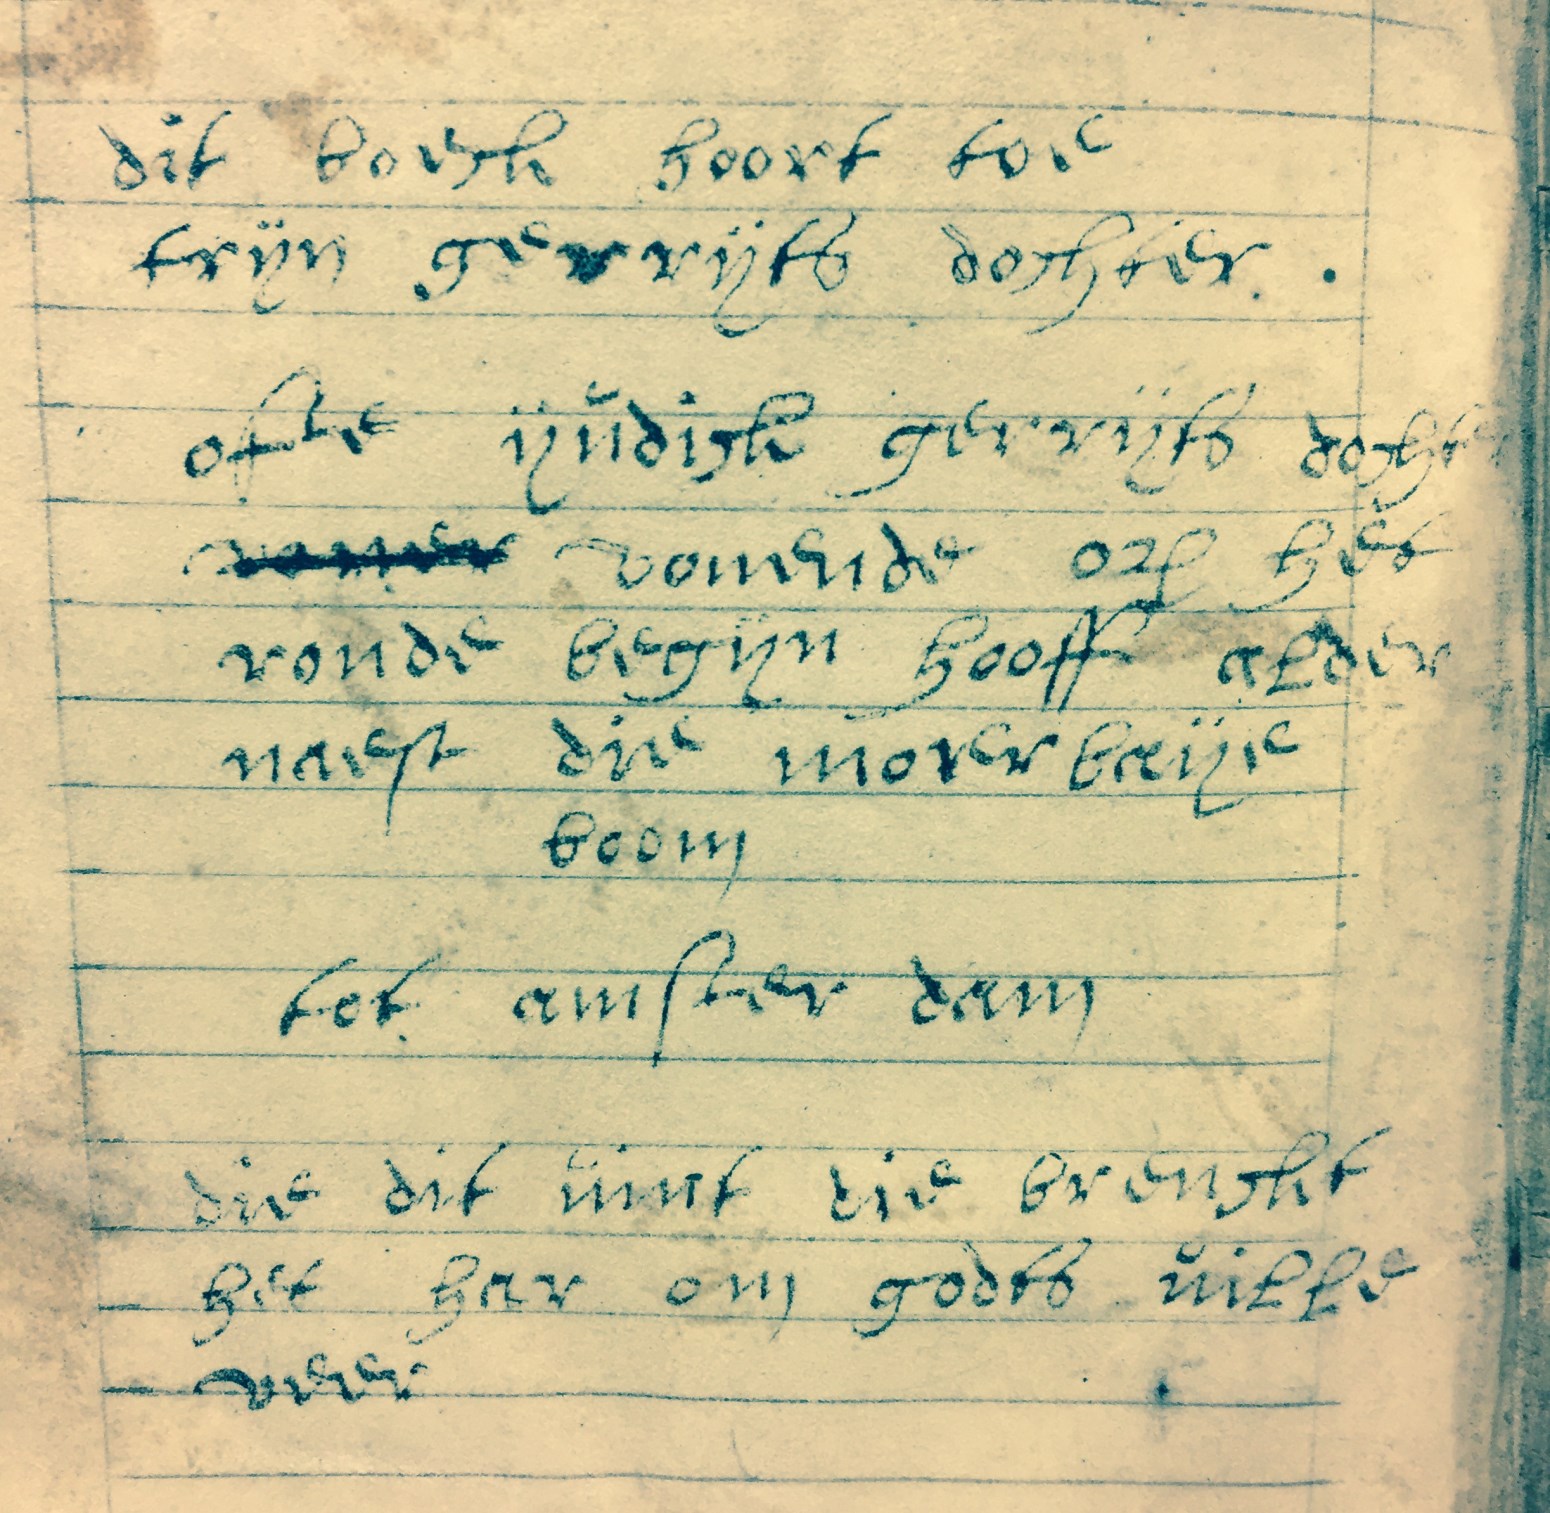 dit boeck hoort toe
trÿn gerrÿts dochter .
ofte ÿŭdick gerrÿts dochter
vonende op het
ronde begÿn hooff alder
naest die moerbaÿe
boom
tot amster dam
die dit ŭint die brenckt
het har om godts ŭille
veer